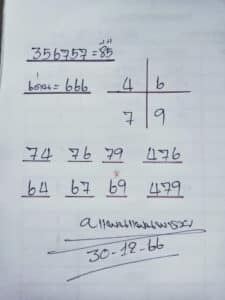 356757=85
เด่น=666
4 6
7 9
74 76 79 476
64 67 69 479
30-12-66